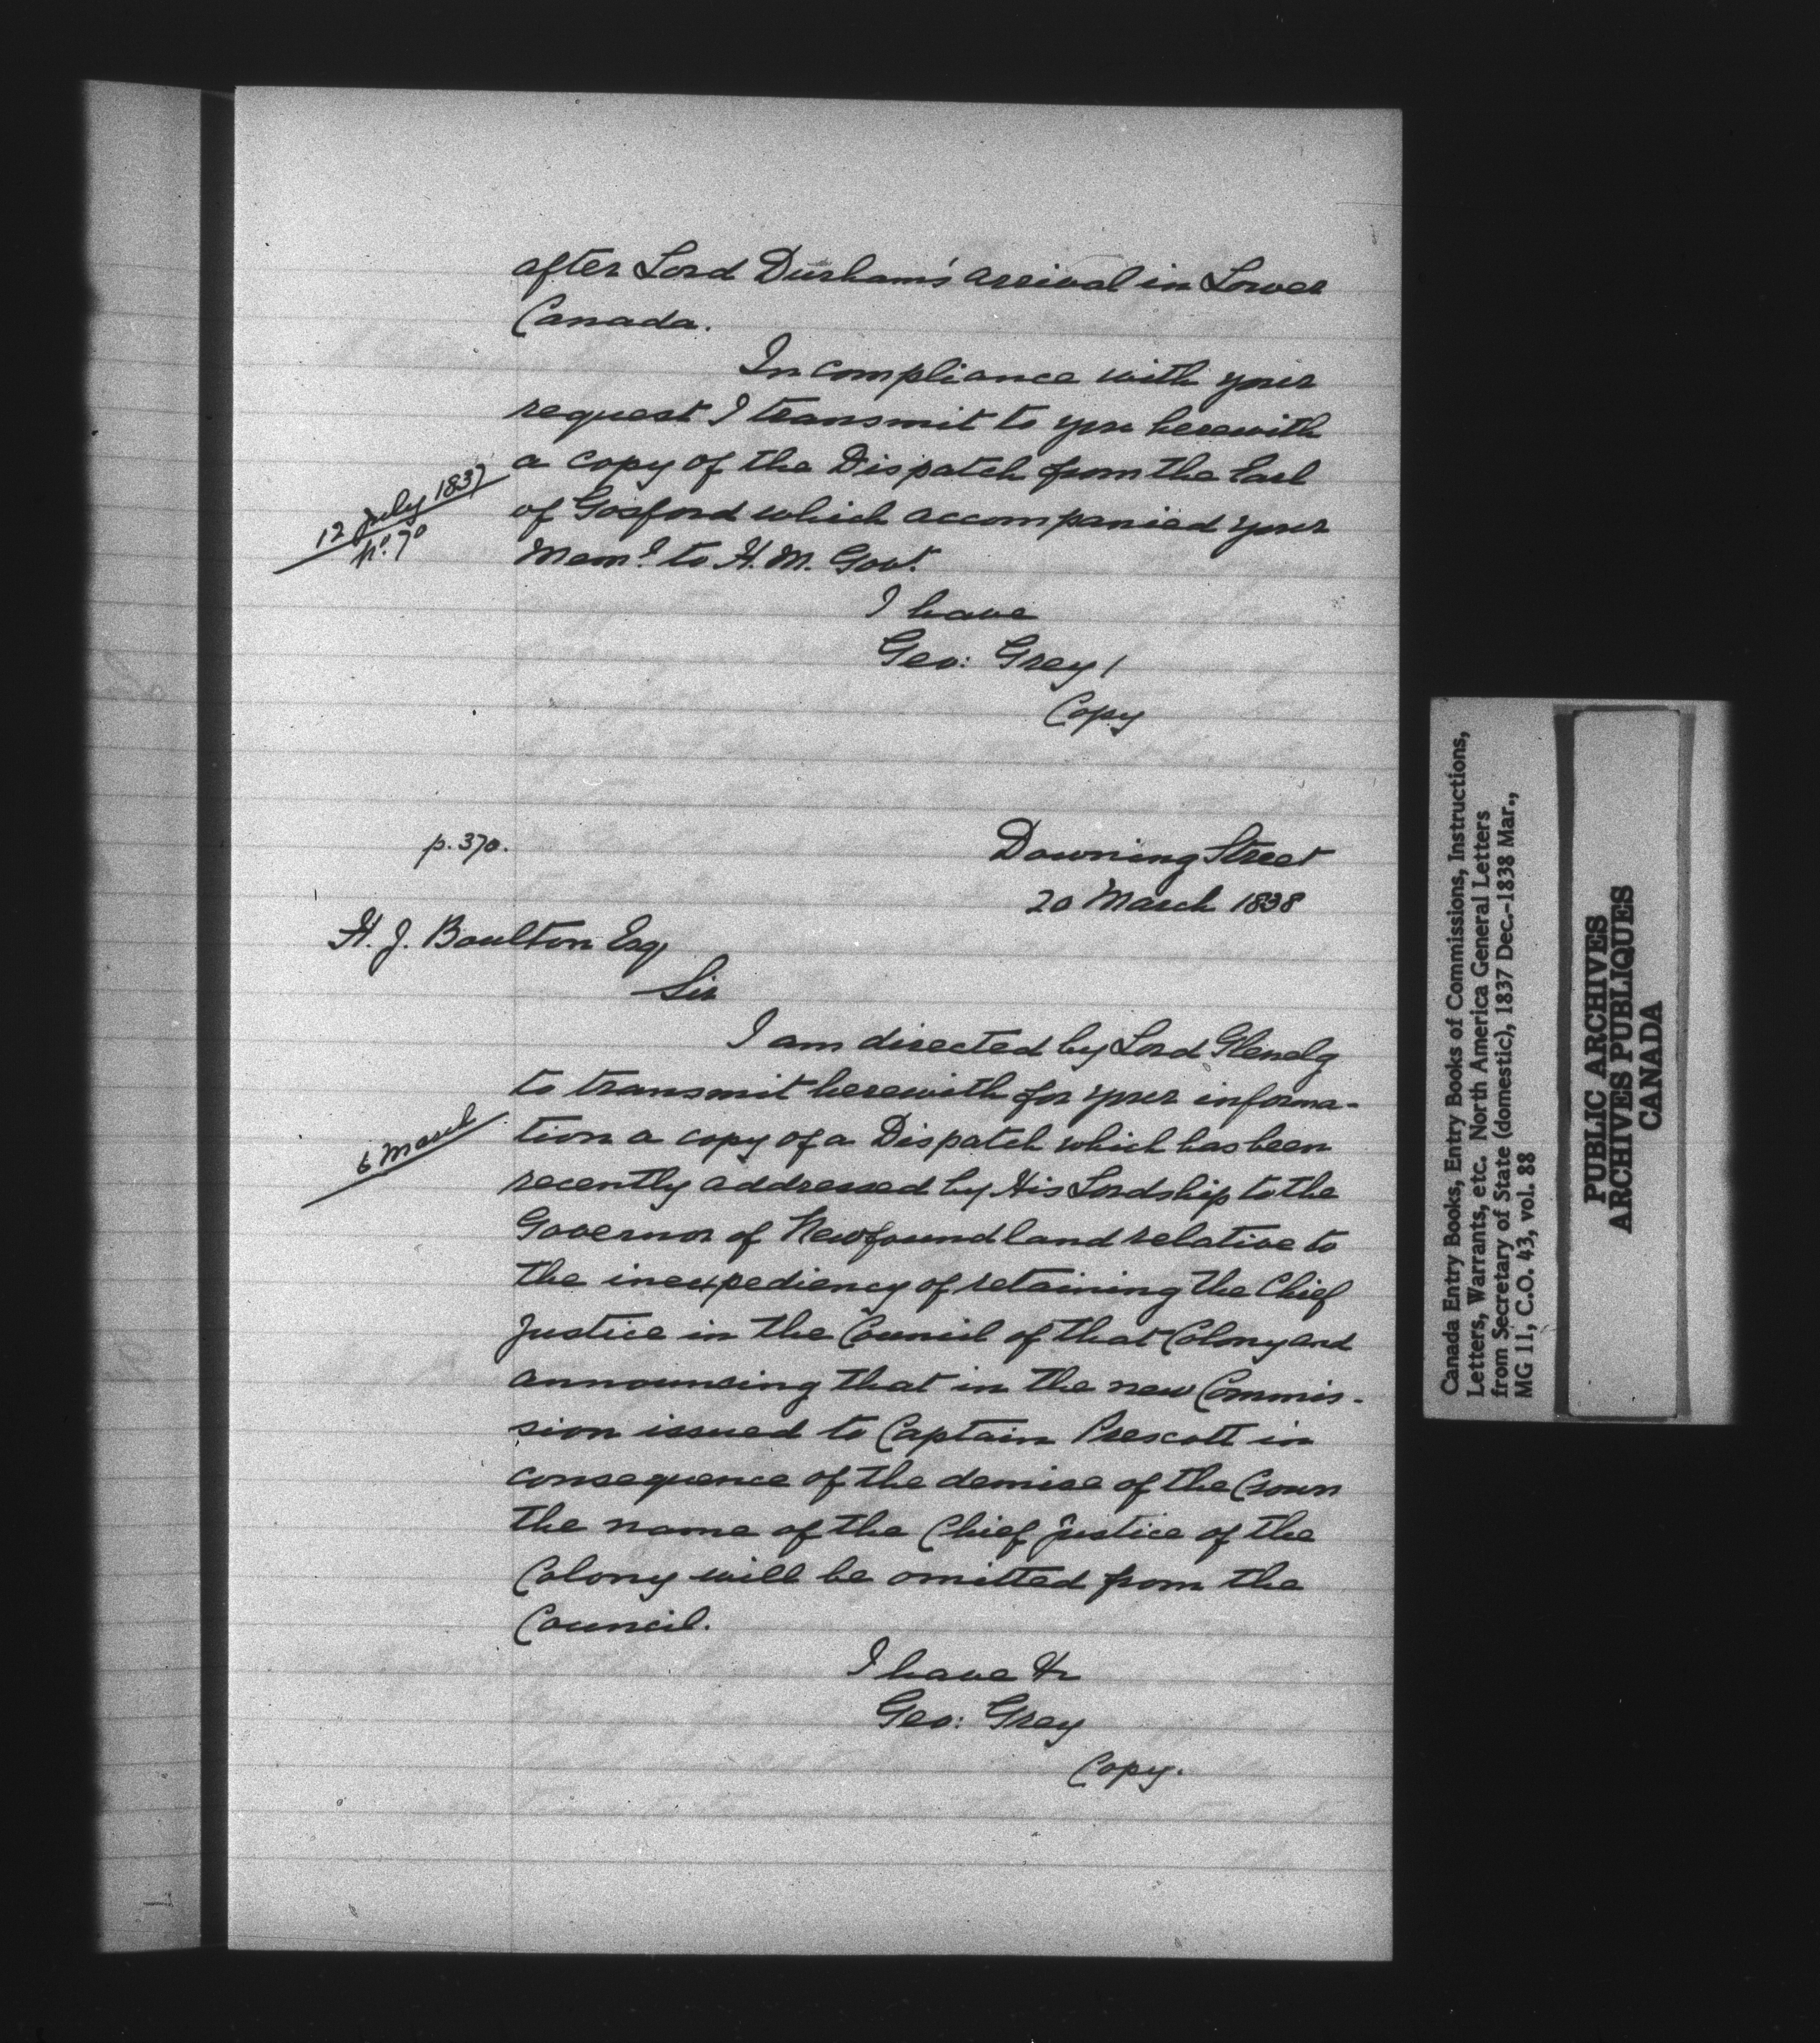 after Lord Durham's arrival in Lower
Canada.
In compliance with your
request I transmit to you herewith
a copy of the Dispatch from the Earl
of Gosford which accompanied your
Mem.l to H. M. Govt.
12 July 1837
No. 70
I have
Geo: Grey /
Copy
p. 370.
Downing Street
20 March 1838
H. J. Boulton Esq
Sir
I am directed by Lord Glenelg
to transmit herewith for your informa-
tion a copy of a Dispatch which has been
6 March
recently addressed by His Lordship to the
Governor of Newfoundland relative to
the inexpediency of retaining the Chief
Justice in the Council of that Colony and
announcing that in the new Commis-
sion issued to Captain Prescott in
consequence of the demise of the Crown
the name of the Chief Justice of the
Colony will be omitted from the
Council.
I have &c
Geo: Grey
Copy.
Canada Entry Books, Entry Books of Commissions, Instructions,
Letters, Warrants, etc. North America General Letters
from Secretary of State (domestic), 1837 Dec.-1838 Mar.,
MG 11, C.O. 43, vol. 88
PUBLIC ARCHIVES
ARCHIVES PUBLIQUES
CANADA